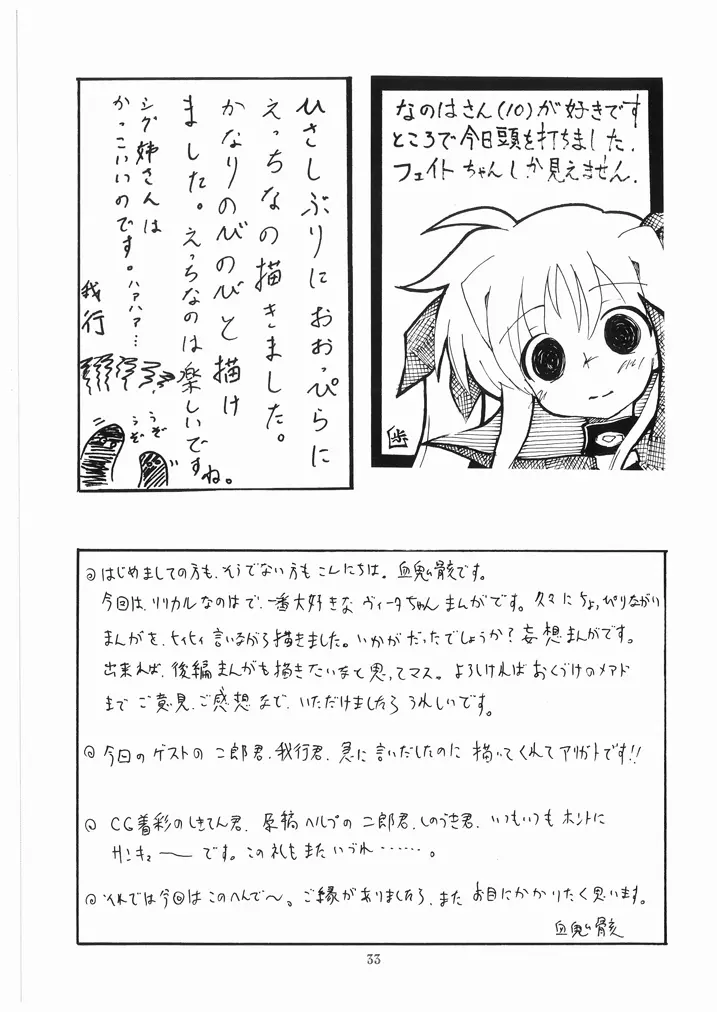 なのはさん(10)が好きです
ところで今日頭を打ちました.
フェイトちゃんしか見えません.
歩
ひさしぶりにおおっぴらに
えっちなの描きました。
かなりのびのびと描け
ました。えっちなのは楽しいですね。
シグ姉さんは
かっこいいのです。ハァハァ…
我行
うぞ
うぞ
◎はじめましての方も、そうでない方もこんにちは。血鬼骸です。
今回は、リリカルなのはで、一番大好きなヴィータちゃんまんがです。久々にちょっぴりながい
まんがを、ヒィヒィ言いながら描きました。いかがだったでしょうか?妄想まんがです。
出来れば、後編まんがも描きたいなと思ってマス。よろしければおくづけのメアド
までご意見、ご感想など、いただけましたらうれしいです。
◎今回のゲストの二郎君、我行君、急に言いだしたのに描いてくれてアリガトです!!
◎CG着彩のしきてん君、原稿ヘルプの二郎君、しのうき君、いつもいつもホントに
サンキュ〜です。この礼もまたいづれ……。
◎それでは今回はこのへんで〜。ご縁がありましたら、またお目にかかりたく思います。
血鬼骸
33